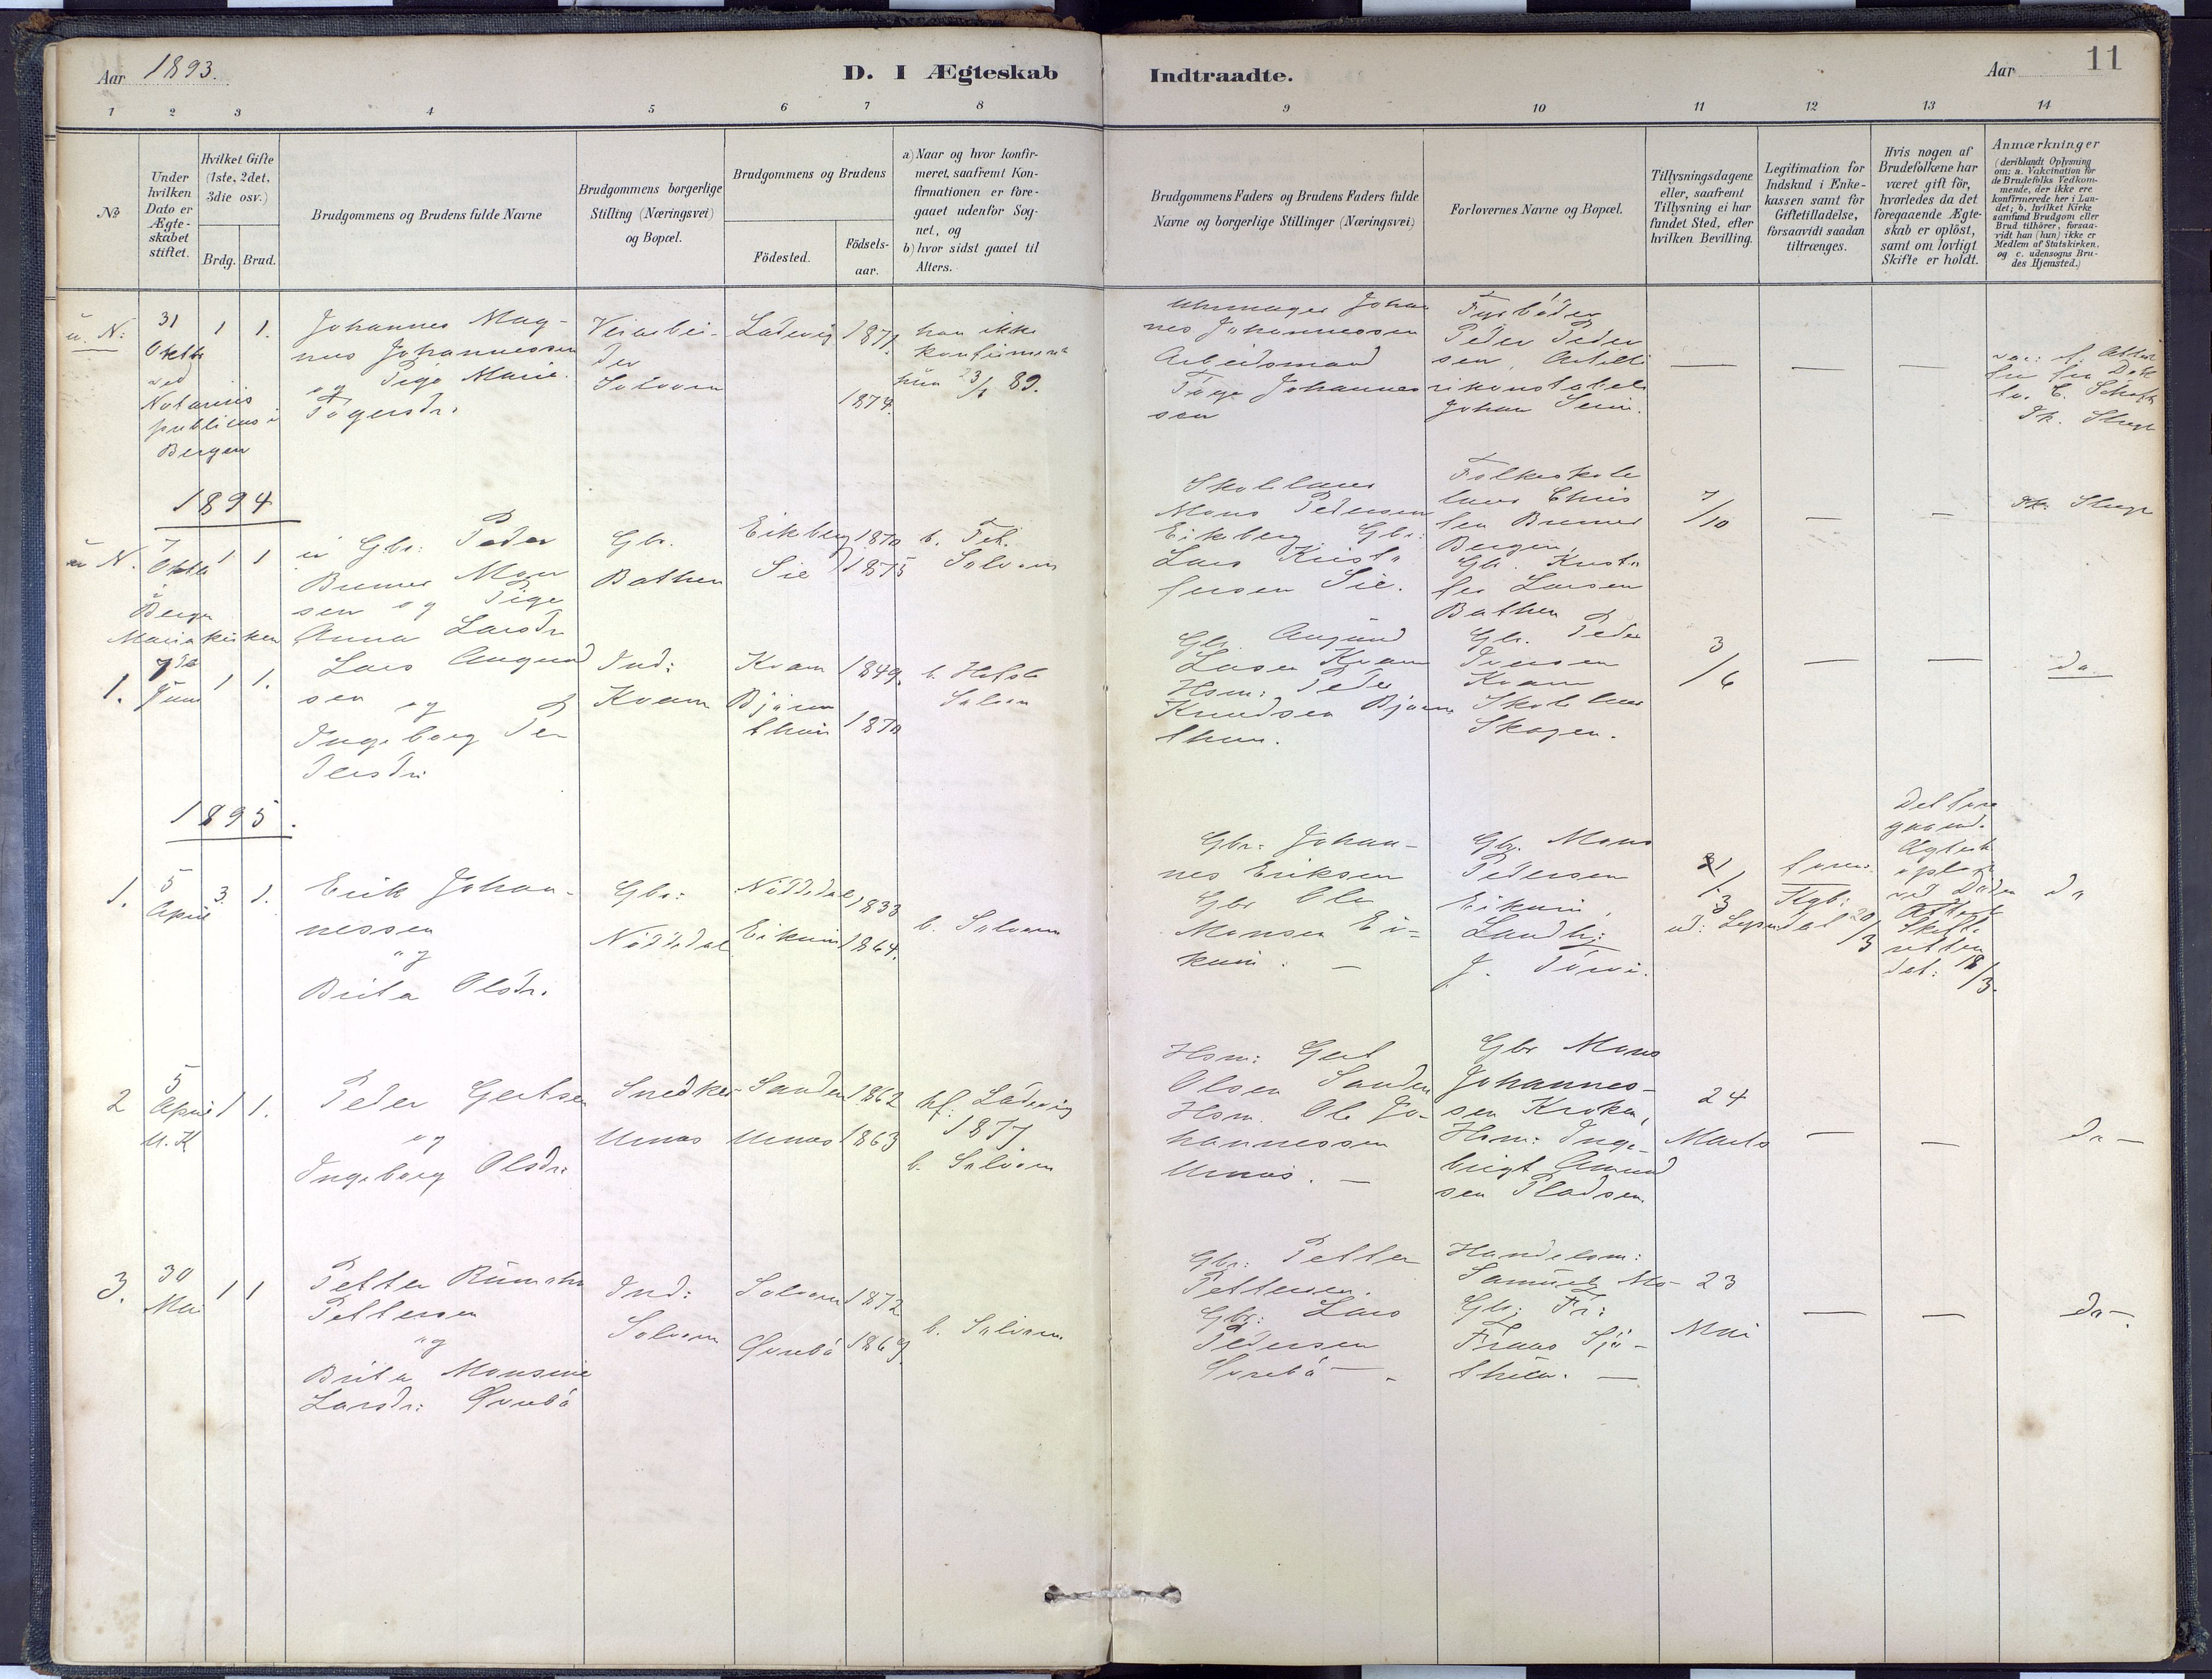 Aar 1893.
D. I Ægteskab
Indtraadte.
Aar
11
1 2 3 4 5 6 7 8
9 10 11 12 13 14
№
Under
hvilken
Dato er
Ægte-
skabet
stiftet.
Hvilket Gifte
(1ste, 2det,
3die osv.)
Brdg. Brud.
Brudgommens og Brudens fulde Navne
Brudgommens borgerlige
Stilling (Næringsvei)
og Bopæl.
Brudgommens og Brudens
Födested.
Födsels-
aar.
a) Naar og hvor konfir-
meret, saafremt Kon-
firmationen er fore-
gaaet udenfor Sog-
net, og
b) hvor sidst gaaet til
Alters.
Brudgommens Faders og Brudens Faders fulde
Navne og borgerlige Stillinger (Næringsvei)
Forlovernes Navne og Bopæl.
Tillysningsdagene
eller, saafremt
Tillysning ei har
fundet Sted, efter
hvilken Bevilling.
Legitimation for
Indskud i Enke-
kassen samt for
Giftetilladelse,
forsaavidt saadan
tiltrænges.
Hvis nogen af
Brudefolkene har
været gift för,
hvorledes da det
foregaaende Ægte-
skab er oplöst,
samt om lovligt
Skifte er holdt.
Anmærkninger
(deriblandt Oplysning
om: a. Vakcination for
de Brudefolks Vedkom-
mende, der ikke ere
konfirmerede her i Lan-
det; b. hvilket Kirke-
samfund Brudgom eller
Brud tilhörer, forsaa-
vidt han (hun) ikke er
Medlem af Statskirken,
og c. udensogns Bru-
des Hjemsted.)
u. N:
31
Oktb
ved
Notarius
publicus i
Bergen
1 1.
Johannes Mag-
nus Johannessen
og Pige Marie
Tögersdr.
Veiarbei-
der
Solvorn
Ladevig
1871.
1874.
han ikke
konfirmeret
hun 23/6 89.
Uhrmager Johan
nes Johannessen
Arbeidsmand
Töge Johannes
sen
Fyrböder
Peder Peder
sen, Artille
rikonstabel
Johan
— — —
1894
u N.
7
Oktb
i
Bergen
Mariakirken
1 1
Gbr. Peder
Bremer Mon
sen og Pige
Anna Larsdr
Gbr.
Bathen
Eikberg 1870
Sie 1875
b.
Solvorn
Skolelærer
Mons Pedersen
Eikberg Gbr:
Lars Krist
fersen Sie.
Folkeskole
lærer Chris
Bremer
Bergen,
Gbr. Krist
fer Larsen
Bathen
7/10
— —
1.
7de
Juni
1 1.
Lars Augund
sen og
Ingeborg Pe
dersdr.
Ind:
Kvam
Kvam 1849.
Bjørn
thun 1870
b. Hafslo
Solvorn
Gbr. Augund
Larsen Kvam
Hsm: Peder
Knudsen Bjørn
thun.
Gbr. Peder
Iversen
Kvam
Skolelærer
Skagen.
3/6
— —
do.
1895.
1.
5
April
3. 1.
Erik Johan-
nessen
og
Brita Olsdr.
Gbr:
Nöttedal
Nöttedal 1833
Eikum 1864.
b. Solvorn
Gbr. Johan-
nes Eriksen
Gbr Ole
Monsen Ei-
kum. —
Gbr. Mons
Pedersen
Eikum,
Landh:
J.
Kgb:
20/3
Det fore
gaaend.
opløst
ved Döden
Attest
Skifte
retten
dat: 18/3.
do
2
5
April
U. K
1 1.
Peder Gertsen
og
Ingeborg Olsdr:
Snedker
Urnæs
Sanden 1862
Urnæs 1863
kf: Ladevig
1877
b. Solvorn
Hsm: Gert
Olsen Sanden
Hsm. Ole Jo-
hannessen
Urnæs. —
Gbr Mons
Johannes-
sen Kroken,
Hsm: Inge-
brigt Amund
sen Pladsen
24
Marts
— —
do —
3.
30
Mai
1 1
Petter
Pettersen
og
Brita Monsine
Larsdr: Övrebö
Ind:
Solvorn
Solvorn 1872
Övrebö 1869.
b. Solvorn
Gbr: Petter
Pettersen.
Gbr: Lars
Pedersen
Övrebö —.
Handelsm:
Samuel Mo-
Gbr; Fr:
Fraas Sjö-
thun. —
23
Mai
— —
do —.